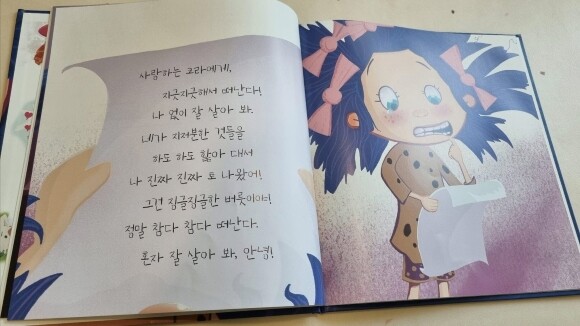 사랑하는 코라에게,
지긋지긋해서 떠난다!
나 없이 잘 살아 봐.
네가 지저분한 것들을
하도 하도 핥아 대서
나 진짜 진짜 토 나왔어!
그건 징글징글한 버릇이야!
정말 참다 참다 떠난다.
혼자 잘 살아 봐, 안녕!